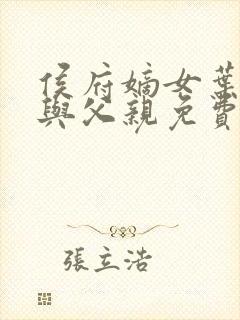 侯府嫡女葉
與父親免費
張立浩